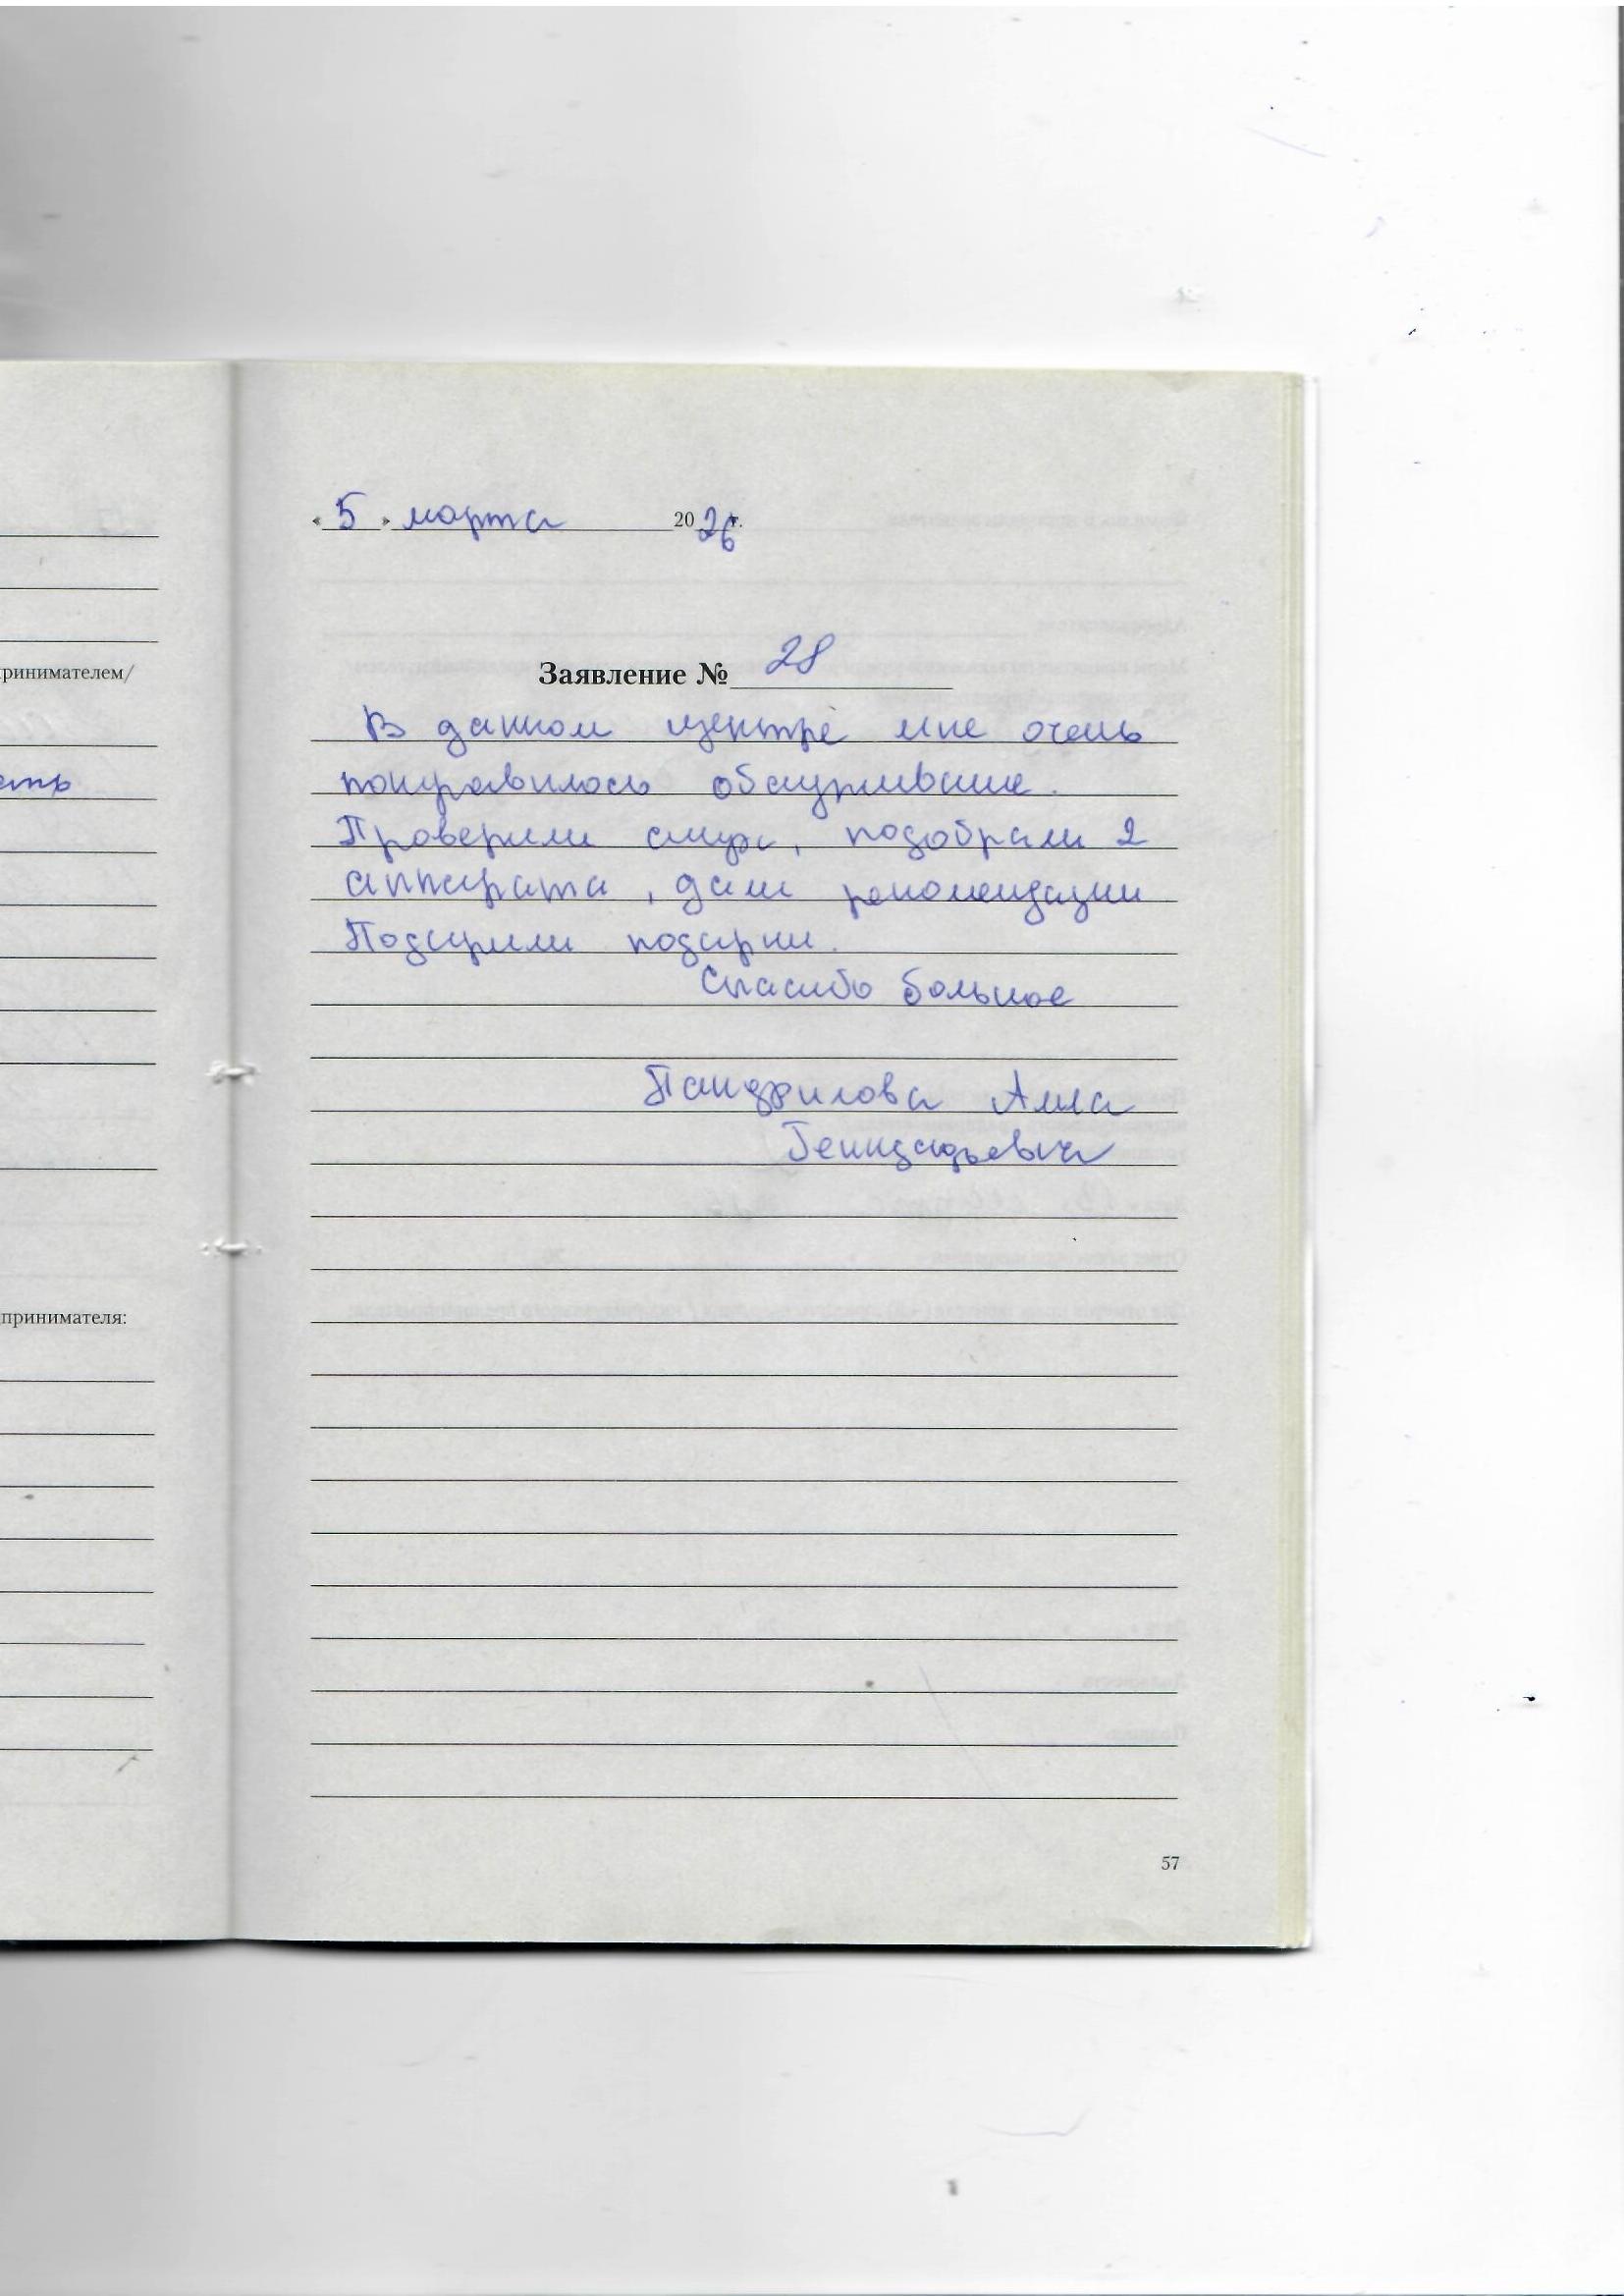 « 5 » марта 2026 г.
ринимателем/
Заявление № 28
В данном центре мне очень
понравилось обслуживание.
Проверили слух, подобрали 2
аппарата, дали рекомендации
Подарили подарки.
Спасибо большое
Алла
Геннадьевна
принимателя:
57